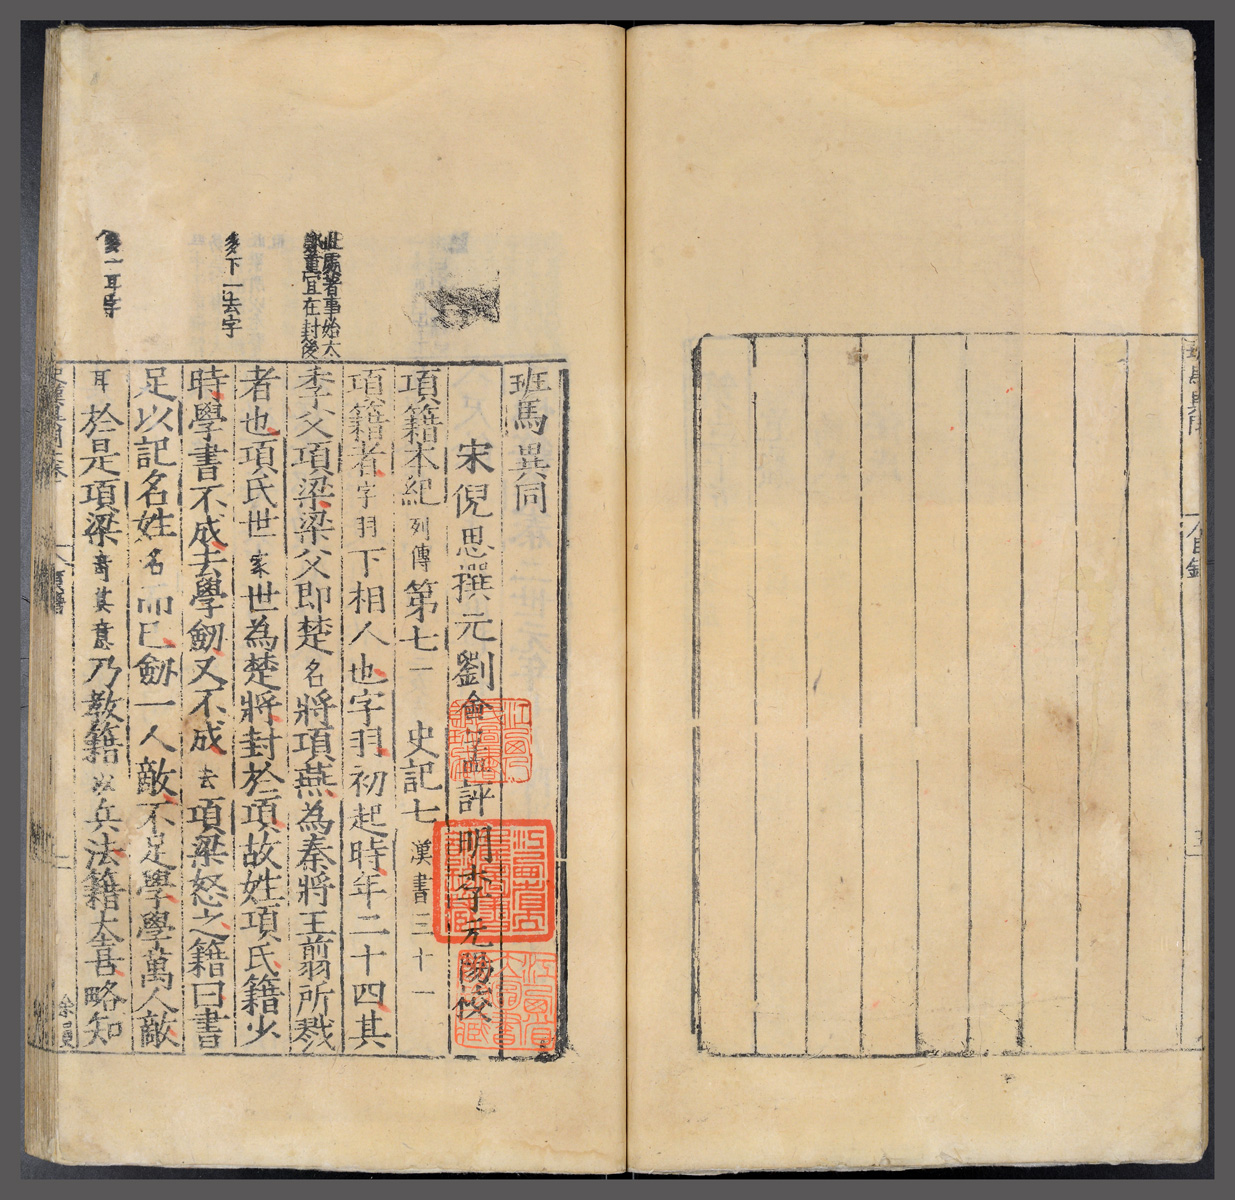 班馬異同
宋倪思撰元劉會孟評明李元陽校
項籍本紀列傳第七一史記七漢書三十一
項籍者字羽下相人也字羽初起時年二十四其
季父項梁梁父即楚名將項燕為秦將王翦所戮
者也項氏世家世為楚將封於項故姓項氏籍少
時學書不成去學劒又不成去項梁怒之籍曰書
足以記名姓名而已劒一人敵不足學學萬人敵
耳於是項梁奇其意乃教籍以兵法籍大喜略知
此處著事始太
鄭重宜在封後
多下一去字
多一耳字